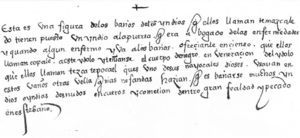 Esta es vna figura de los baños delos yndios q̃ ellos llaman temazcale
do tienen puesto vn yndio ala puerta q̃ era abogado delas enfermedades
y quando algun enfermo yva alos baños ofreçiale ençienso q̃ ellos
llaman copale. aeste ydolo y teñianse el cuerpo denegro en veneraçion del ydolo
que ellos llaman tezcatepocal ques vno desus mayorales dioses. vsavan en
estos vaños otras nefandas hazian q̃ es bañarse muchos yn
dios o yndias desnudos encueros y cometian dentro gran fealdad y pecado
eneste baño.